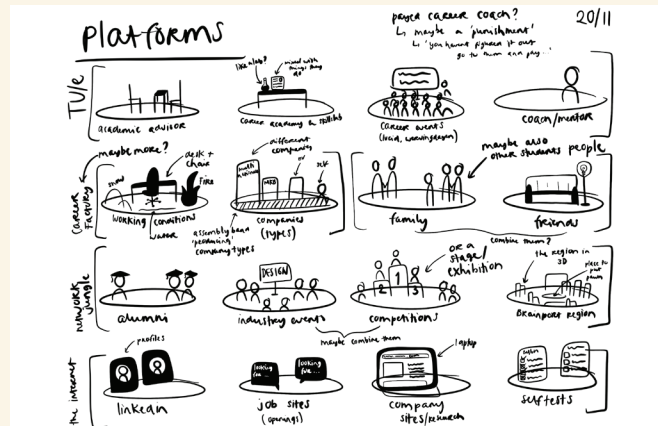 platforms
payed career coach?
↳ maybe a 'punishment'
↳ 'you havent figured it out
go to them and pay...'
20/11
TU/e
academic advisor
like a lab?
mixed with
things they
do
career academy & skillslab
career events
coach/mentor
maybe more?
career
factory
snow
desk +
chair
fire
water
working conditions
different
companies
multi
national
MKB
self
assembly band
'producing'
company types
companies
(types)
family
maybe also
other students
people
friends
combine them?
network
jungle
alumni
DESIGN
industry events
2 1 3
competitions
or a
stage/
exhibition
the region in
3D
place to
put
Brainport region
maybe combine them
the internet
profiles
linkedin
looking
for...
looking
for...
job sites
(openings)
laptop
company
sites/research
selftests